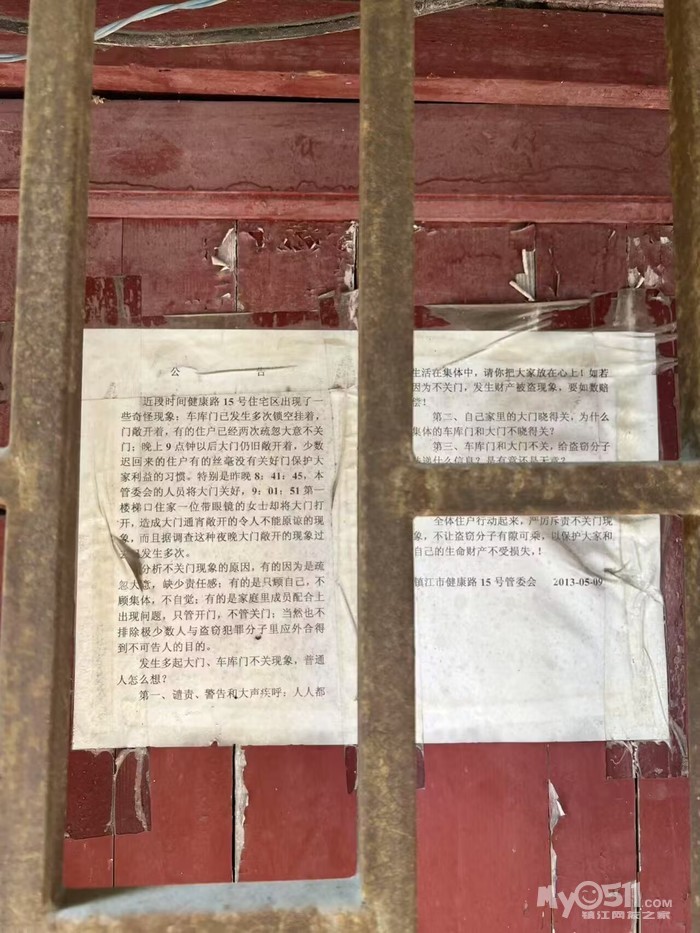 公 告
近段时间健康路 15 号住宅区出现了一
些奇怪现象：车库门已发生多次锁空挂着，
门敞开着，有的住户已经两次疏忽大意不关
门；晚上 9 点钟以后大门仍旧敞开着，少数
迟回来的住户有的丝毫没有关好门保护大
家利益的习惯。特别是昨晚 8：41：45，本
管委会的人员将大门关好，9：01：51 第一
楼梯口住家一位带眼镜的女士却将大门打
开，造成大门通宵敞开的令人不能原谅的现
象，而且据调查这种夜晚大门敞开的现象过
发生多次。
分析不关门现象的原因，有的因为是疏
忽大意，缺少责任感；有的是只顾自己，不
顾集体，不自觉；有的是家庭里成员配合上
出现问题，只管开门，不管关门；当然也不
排除极少数人与盗窃犯罪分子里应外合得
到不可告人的目的。
发生多起大门、车库门不关现象，普通
人怎么想？
第一、谴责、警告和大声疾呼：人人都
生活在集体中，请你把大家放在心上！如若
因为不关门，发生财产被盗现象，要如数赔
偿！
第二、自己家里的大门晓得关，为什么
集体的车库门和大门不晓得关？
第三、车库门和大门不关，给盗窃分子
传递什么信息？是有意还是无意？
全体住户行动起来，严厉斥责不关门现
象，不让盗窃分子有隙可乘，以保护大家和
自己的生命财产不受损失，！
镇江市健康路 15 号管委会 2013-05-09
My0511.COM
镇江网友之家